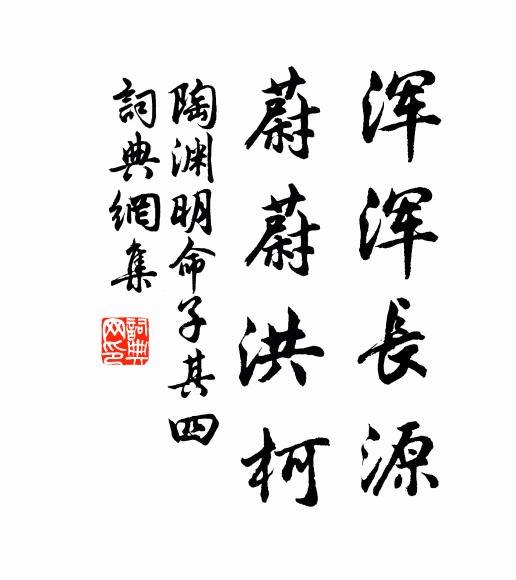 浑浑長源
蔚蔚洪柯
陶渊明命子其四
詞典網集
詞典网印